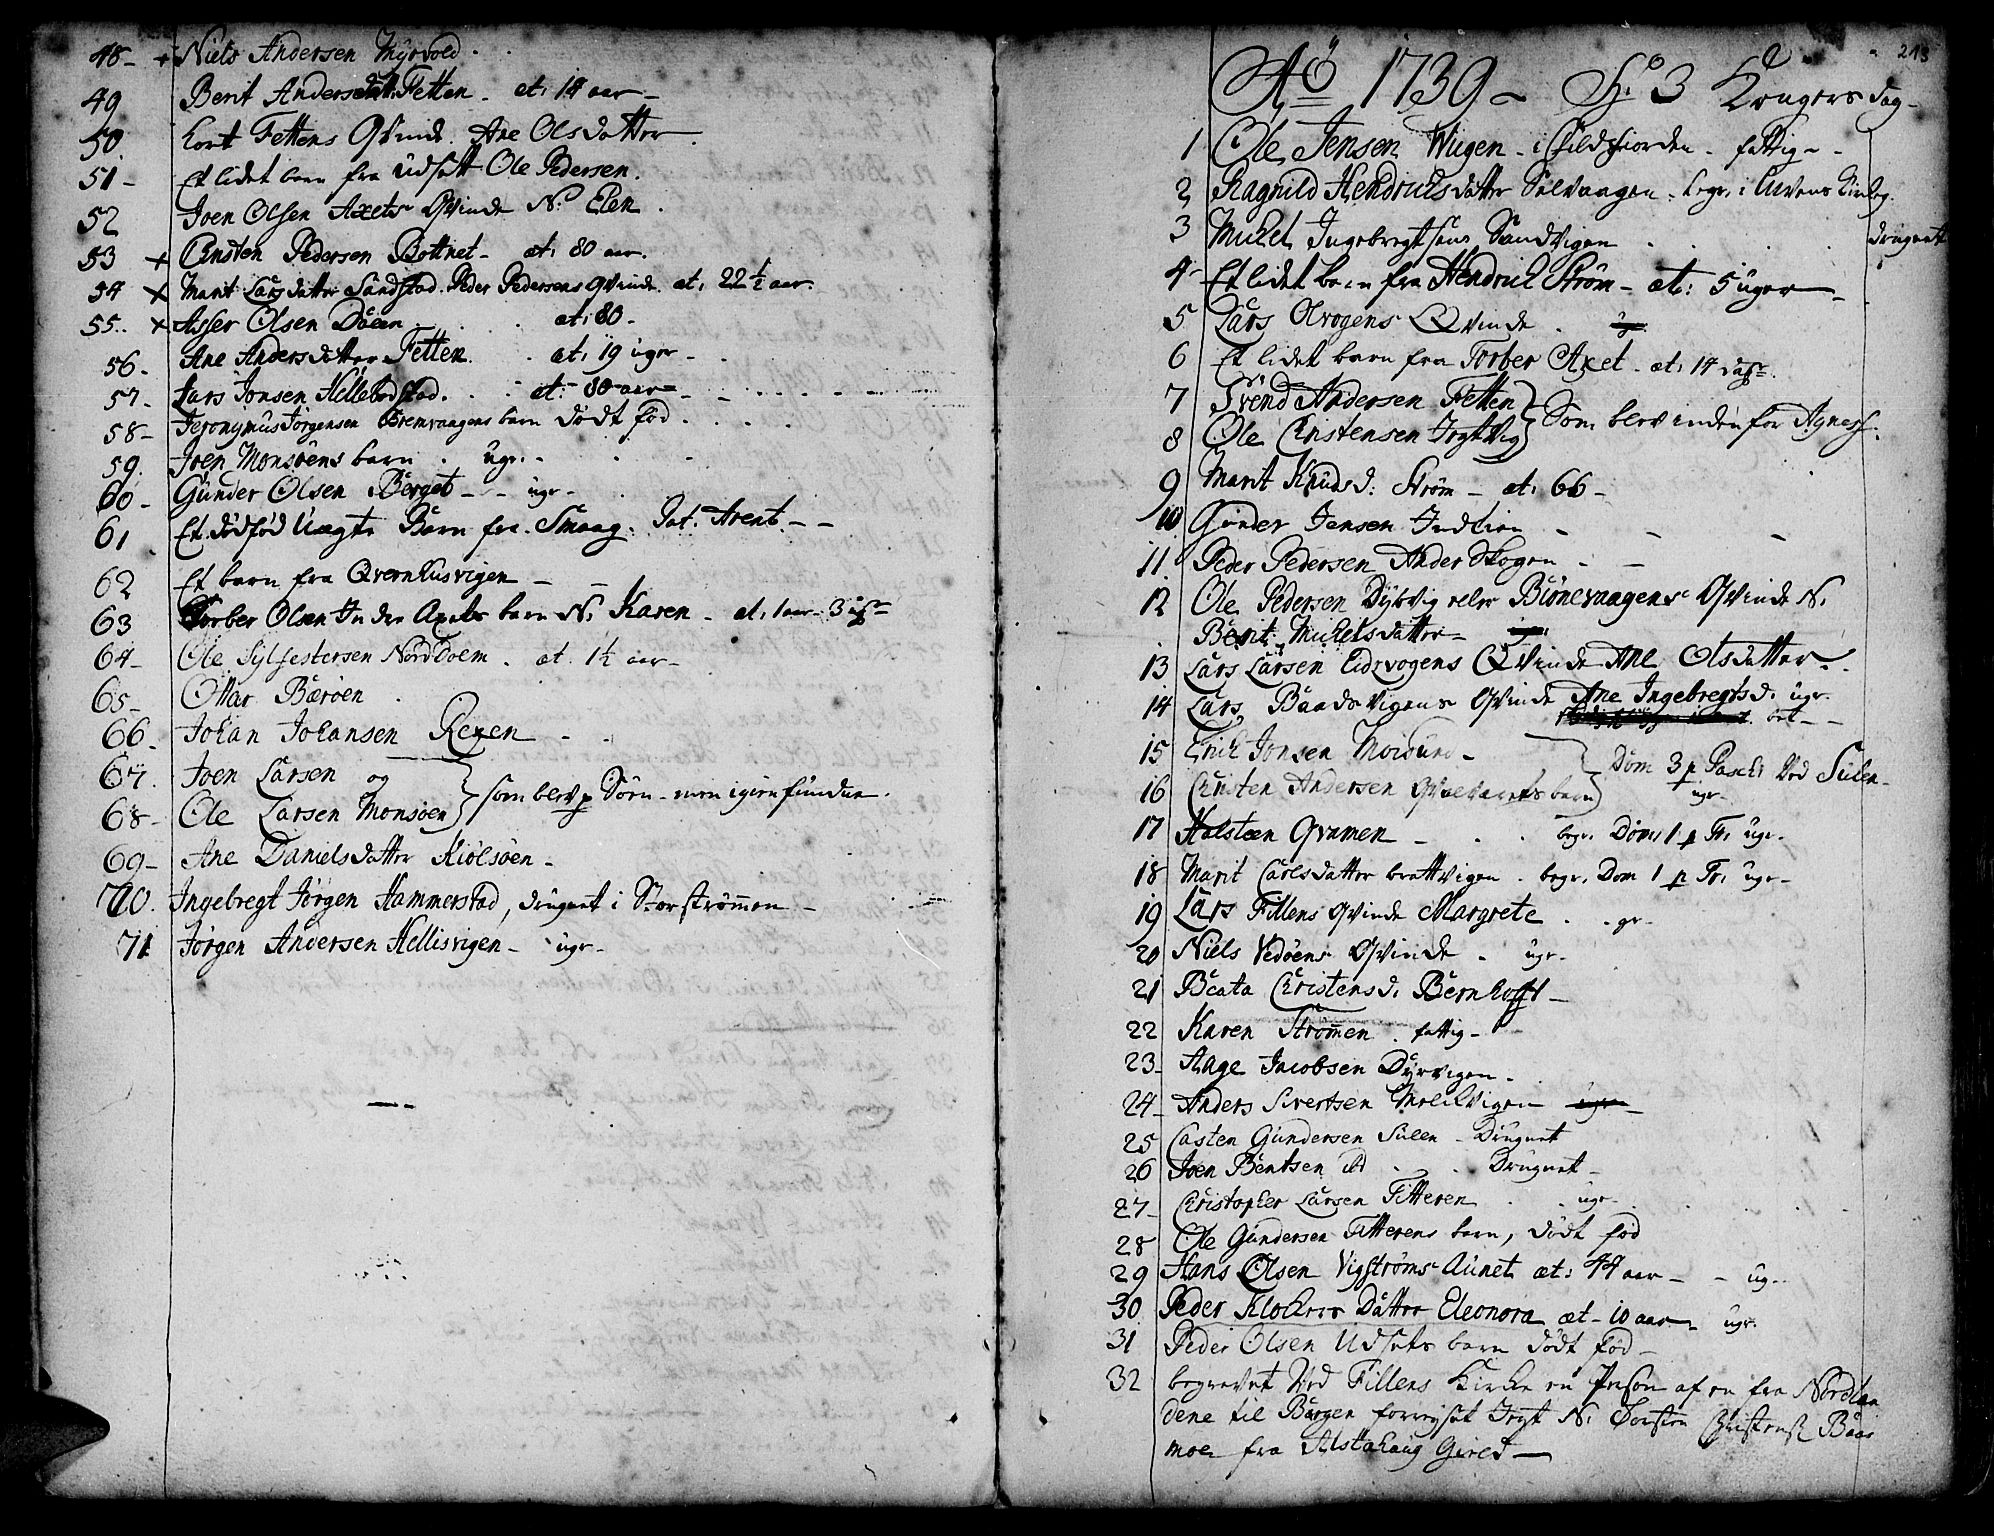 48- + Niels Andersen Myrvold.
49 Berit Andersdatt. Fetten. æt: 14 aar-
50. Cort Fettens Qvinde. Ane Olsdatter
51- Et lidet barn fra Udsætt Ole Pedersen.
52 Joen Olsen Axets Qvinde N. Elen.
53 + Christen Pedersen Bottnet- æt: 80 aar.
54 + Marit Larsdatter Sandstad. Peder Pedersens Qvinde. æt: 22 1/2 aar.
55. + Asser Olsen Döeen. æt: 80-
56. Ane Andersdatter Fetten. æt: 19 uger-
57- Lars Jonsen Hellebostad. æt: 80 aar
58- Jeronymus Jörgensen Bremvaagens barn dödt föd.
59. Joen Monsöens barn. ugr.
60- Gunder Olsen Berget- ugr-
61 Et dödföd Uægte Barn fra Smaag. Pat. Arent--
62 Et barn fra Qvernhusvigen-
63 Torber Olsen Indre Axets barn N. Karen- æt: 1 aar 3 ug
64- Ole Sylfestersen Norddoem. æt. 1 1/2 aar-
65- Ottar Bæröen
66- Johan Johansen Rexen
67. Joen Larsen og
68- Ole Larsen Monsöen } som blev p Söen- men igien fundne.
69- Ane Danielsdatter Kiölsöen-
70. Ingebregt Jörgen Hammerstad, druknet i Storströmmen-
71 Jörgen Andersen Hellisvigen- ugr-
213
Aö 1739- H. 3 Kongers dag-
1 Ole Jensen Wugen- i Childsfiorden- fattig-
2 Ragnild Hendrichsdatter Selvaagen. begr. i Qvens Kirkeg.
3 Michel Ingebregtsens Sandvigen druknet
4- Et lidet barn fra Hendrich Ström- æt: 5 uger-
5 Lars Olvogens Qvinde.
6 Et lidet barn fra Torber Axet. æt: 14 dage
7 Svend Andersen Fetten
8 Ole Christensen Jegtvig } Som blev inden for Agnes
9 Marit Knudsd: Ström- æt: 66-
10 Gunder Jensen Indtien
11 Peder Pedersen Ander Skogen
12 Ole Pedersen Dybvig eller Biönevaagens Qvinde N.
Berit Michelsdatter-
13 Lars Larsen Eidsvogens Qvinde Ane Olsdatter.
14 Lars Baadsvigens Qvinde Ane Ingebregtsd. ugr.
15 Erich Jonsen Moisund-
16 Christen Andersen Qvalvaarets barn } Dom 3 p Pasch: Ved Sulen- ugr-
17 Halsteen Qvamen- begr. Dom. 1 p Tr. ugr.
18 Marit Carlsdatter brattvigen. begr. Dom 1 p Tr. ugr-
19 Lars Fillens Qvinde Margrete. gr-
20 Niels Vedöens Qvinde. ugr-
21 Beata Christensd. Bernhofft-
22 Karen Strömmen. fattig-
23- Aage Jacobsen Dyrvigen-
24- Anders Sivertsen Melchvigen
25 Casten Gundersen Sulen- Druknet
26 Joen Bentsen ib Druknet-
27- Christopher Larsen Fitteren. ugr-
28 Ole Gundersen Fitterens barn, dödt föd
29 Hans Olsen Vigströms Aunet æt: 44 aar- - ug-
30 Peder Klockers Datter Eleonora æt- 10 aar- ugr.
31 Peder Olsen Udsets barn dödt föd-
32 begravet Ved Fillens Kirke en Person af en fra Nordlan
dene til Bergen forreyset Jegt N. Torsten Christens Baas
moe fra Alstahaug Gield-